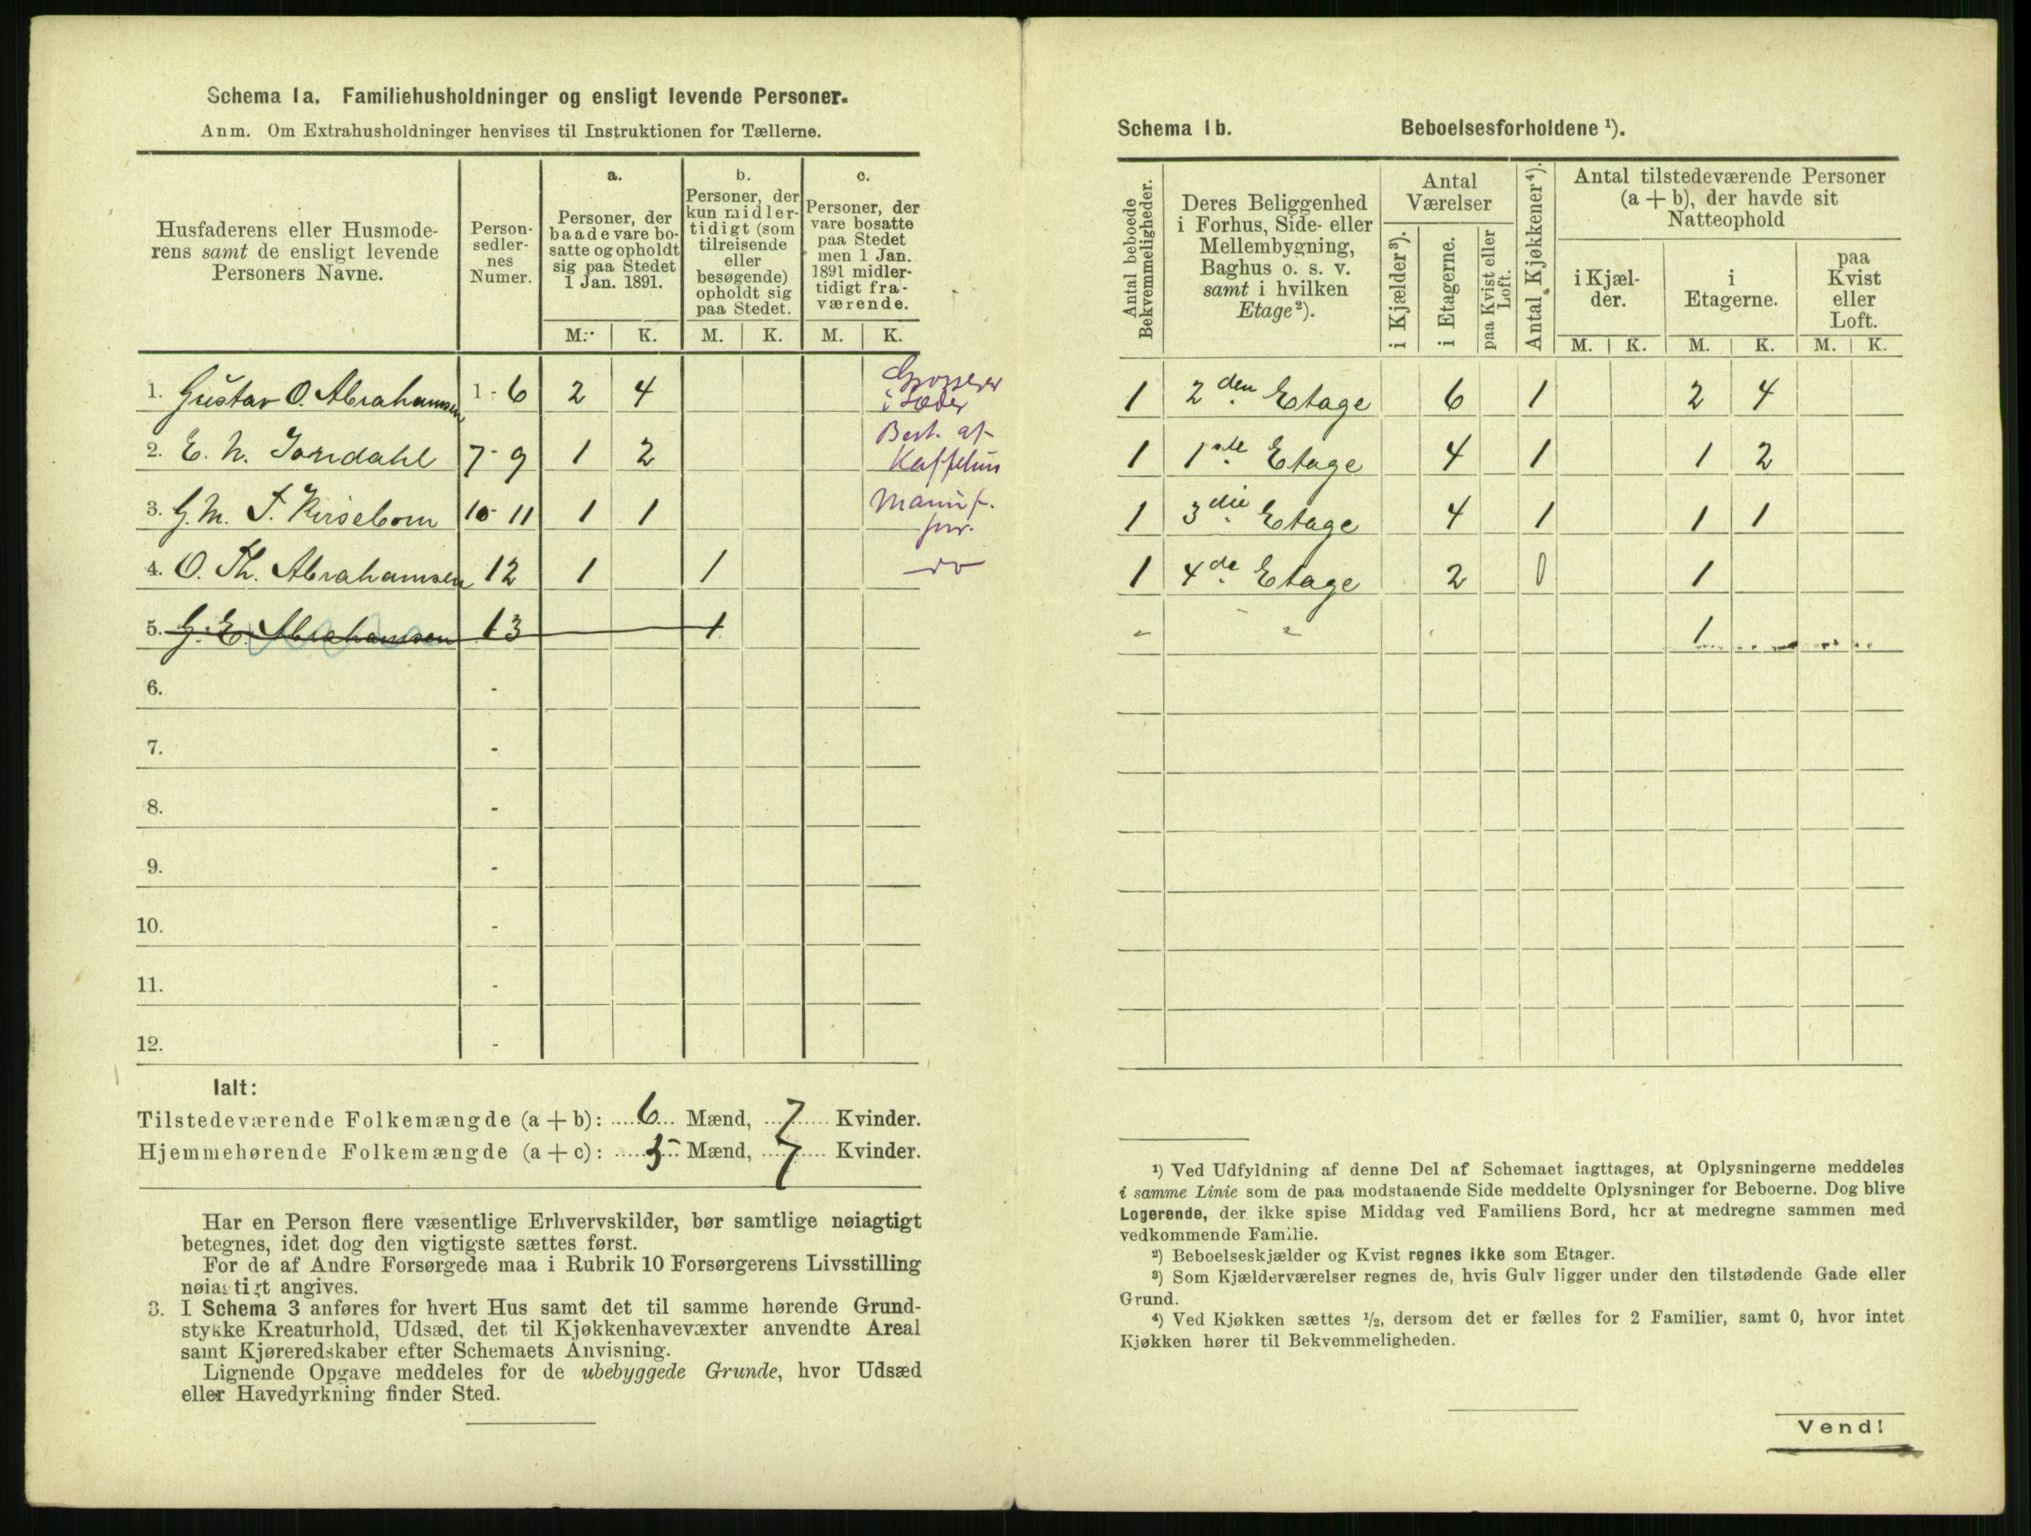 Schema 1a. Familiehusholdninger og ensligt levende Personer.
Anm. Om Extrahusholdninger henvises til Instruktionen for Tællerne.
Husfaderens eller Husmoderens samt de ensligt levende Personers Navne.
Personsedlernes Numer.
a. Personer, der baade vare bosatte og opholdt sig paa Stedet 1 Jan. 1891.
b. Personer, der kun midlertidigt (som tilreisende eller besøgende) opholdt sig paa Stedet.
c. Personer, der vare bosatte paa Stedet men 1 Jan. 1891 midlertidigt fraværende.
M. K. M. K. M. K.
1. Gustav O. Abrahamsen 1-6 2 4 Grosserer i Læder
2. E. N. Jordahl 7-9 1 2 Best. af Kaffehus
3. G. M. F. Kirsebom 10-11 1 1 Manuf.
4. O. Th. Abrahamsen 12 1 1 do
5. G. E. Abrahamsen 13 1
6. -
7. -
8. -
9. -
10. -
11. -
12. -
Ialt:
Tilstedeværende Folkemængde (a + b): 6 Mænd, 7 Kvinder.
Hjemmehørende Folkemængde (a + c): 5 Mænd, 7 Kvinder.
Har en Person flere væsentlige Erhvervskilder, bør samtlige nøiagtigt
betegnes, idet dog den vigtigste sættes først.
For de af Andre Forsørgede maa i Rubrik 10 Forsørgerens Livsstilling
nøiagtigt angives.
3. I Schema 3 anføres for hvert Hus samt det til samme hørende Grund-
stykke Kreaturhold, Udsæd, det til Kjøkkenhavevæxter anvendte Areal
samt Kjøreredskaber efter Schemaets Anvisning.
Lignende Opgave meddeles for de ubebyggede Grunde, hvor Udsæd
eller Havedyrkning finder Sted.
Schema 1b. Beboelsesforholdene ¹).
Antal beboede Bekvemmeligheder.
Deres Beliggenhed i Forhus, Side- eller Mellembygning, Baghus o. s. v. samt i hvilken Etage²).
Antal Værelser
i Kjælder³).
i Etagerne.
paa Kvist eller Loft.
Antal Kjøkkener⁴).
Antal tilstedeværende Personer (a + b), der havde sit Natteophold
i Kjælder.
i Etagerne.
paa Kvist eller Loft.
M. K. M. K. M. K.
1 2den Etage 6 1 2 4
1 1ste Etage 4 1 1 2
1 3die Etage 4 1 1 1
1 4de Etage 2 0 1
- - 1
¹) Ved Udfyldning af denne Del af Schemaet iagttages, at Oplysningerne meddeles
i samme Linie som de paa modstaaende Side meddelte Oplysninger for Beboerne. Dog blive
Logerende, der ikke spise Middag ved Familiens Bord, her at medregne sammen med
vedkommende Familie.
²) Beboelseskjælder og Kvist regnes ikke som Etager.
³) Som Kjælderværelser regnes de, hvis Gulv ligger under den tilstødende Gade eller
Grund.
⁴) Ved Kjøkken sættes ½, dersom det er fælles for 2 Familier, samt 0, hvor intet
Kjøkken hører til Bekvemmeligheden.
Vend!